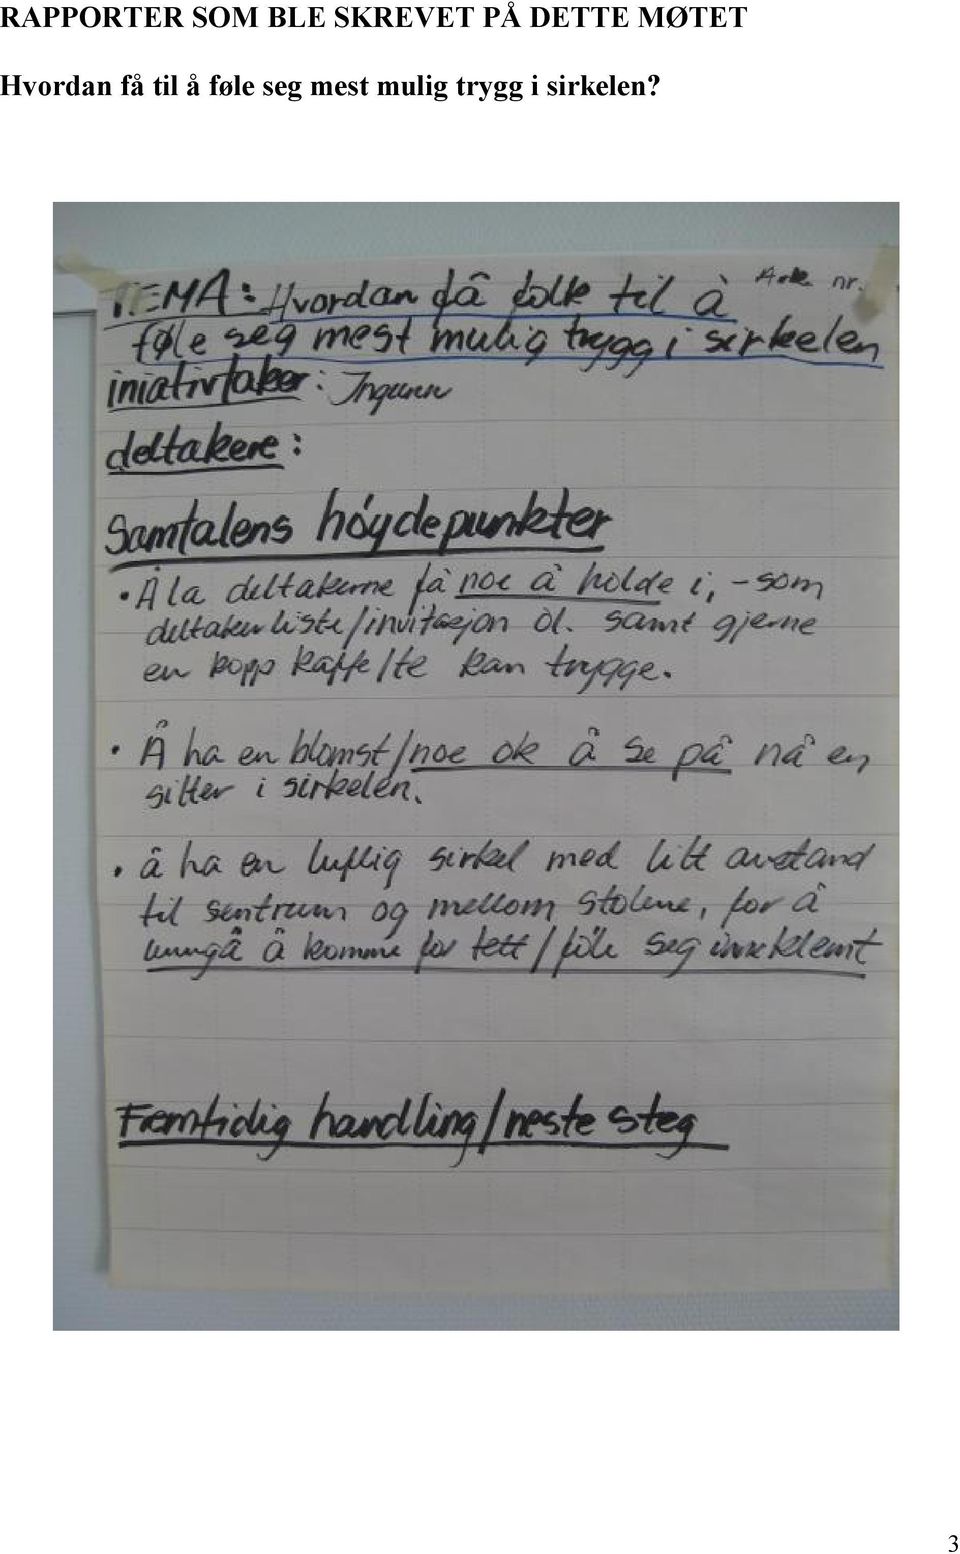 RAPPORTER SOM BLE SKREVET PÅ DETTE MØTET
Hvordan få til å føle seg mest mulig trygg i sirkelen?
TEMA: Hvordan få folk til å Ark nr.
føle seg mest mulig trygg i sirkelen
iniativtaker: Ingunn
deltakere:
Samtalens høydepunkter
• Å la deltakerne få noe å holde i, - som
deltakerliste/invitasjon ol. samt gjerne
en kopp kaffe/te kan trygge.
• Å ha en blomst/noe ok å se på nå en
sitter i sirkelen.
• å ha en luftig sirkel med litt avstand
til sentrum og mellom stolene, for å
unngå å komme for tett/føle seg inneklemt
Fremtidig handling/neste steg
3